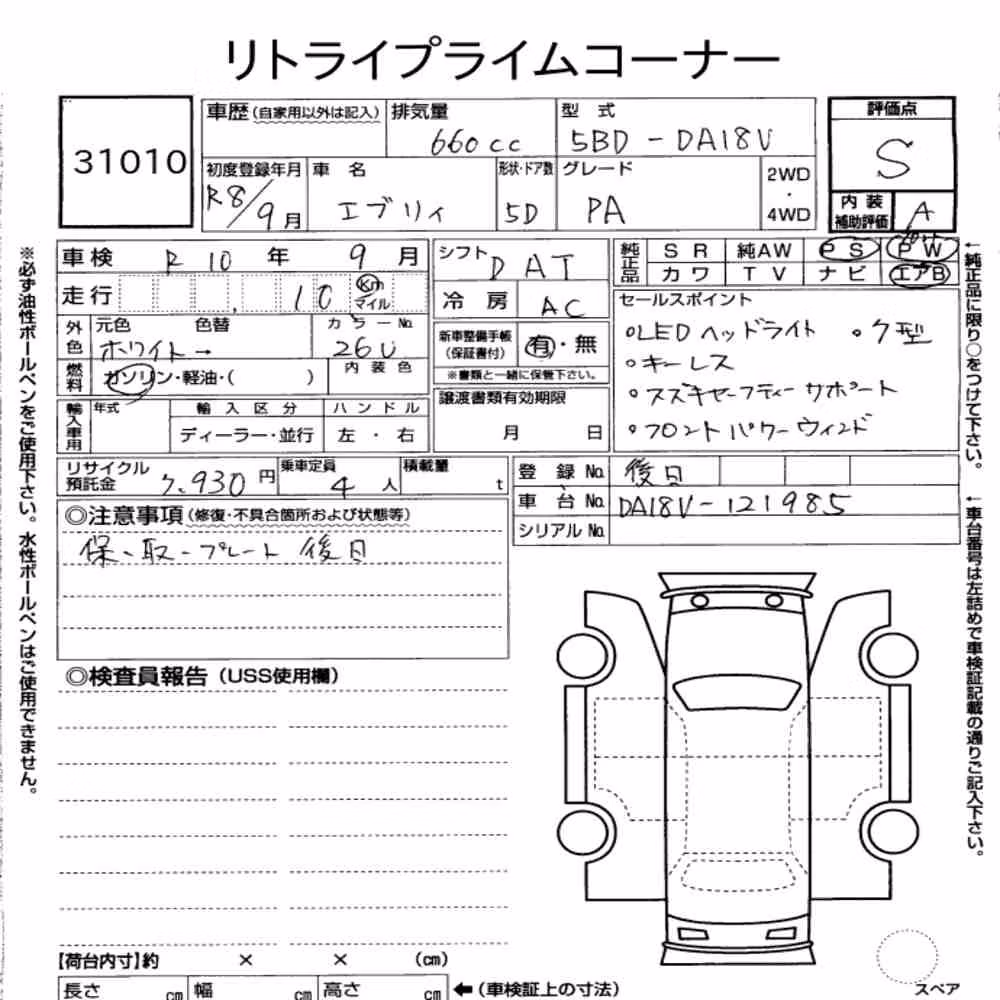 リトライプライムコーナー
31010
車歴(自家用以外は記入) 排気量 660cc 型式 5BD-DA18V 評価点 S
初度登録年月 R8/9月 車名 エブリィ 形状・ドア数 5D グレード PA 2WD・4WD 内装補助評価 A
車検 R10年 9月 シフト DAT 純正品 SR 純AW PS PW
走行 10 Km マイル 冷房 AC カワ TV ナビ エアB
外色 元色 色替 ホワイト→ カラーNo. 26U 新車整備手帳(保証書付) 有・無
セールスポイント
○LEDヘッドライト ○ケ型
○キーレス
○スズキセーフティーサポート
○フロントパワーウィンド
燃料 ガソリン・軽油・( ) 内装色 ※書類と一緒に保管下さい。
輸入車用 年式 輸入区分 ハンドル 譲渡書類有効期限
ディーラー・並行 左・右 月 日
リサイクル預託金 7.930円 乗車定員 4人 積載量 t 登録No. 後日
車台No. DA18V-121985
シリアルNo.
◎注意事項(修復・不具合箇所および状態等)
保・取・プレート 後日
◎検査員報告(USS使用欄)
【荷台内寸】約 × × (cm)
長さ cm 幅 cm 高さ cm ←(車検証上の寸法)
スペア
※必ず油性ボールペンをご使用下さい。水性ボールペンはご使用できません。
←純正品に限り○をつけて下さい。
←車台番号は左詰めで車検証記載の通りご記入下さい。